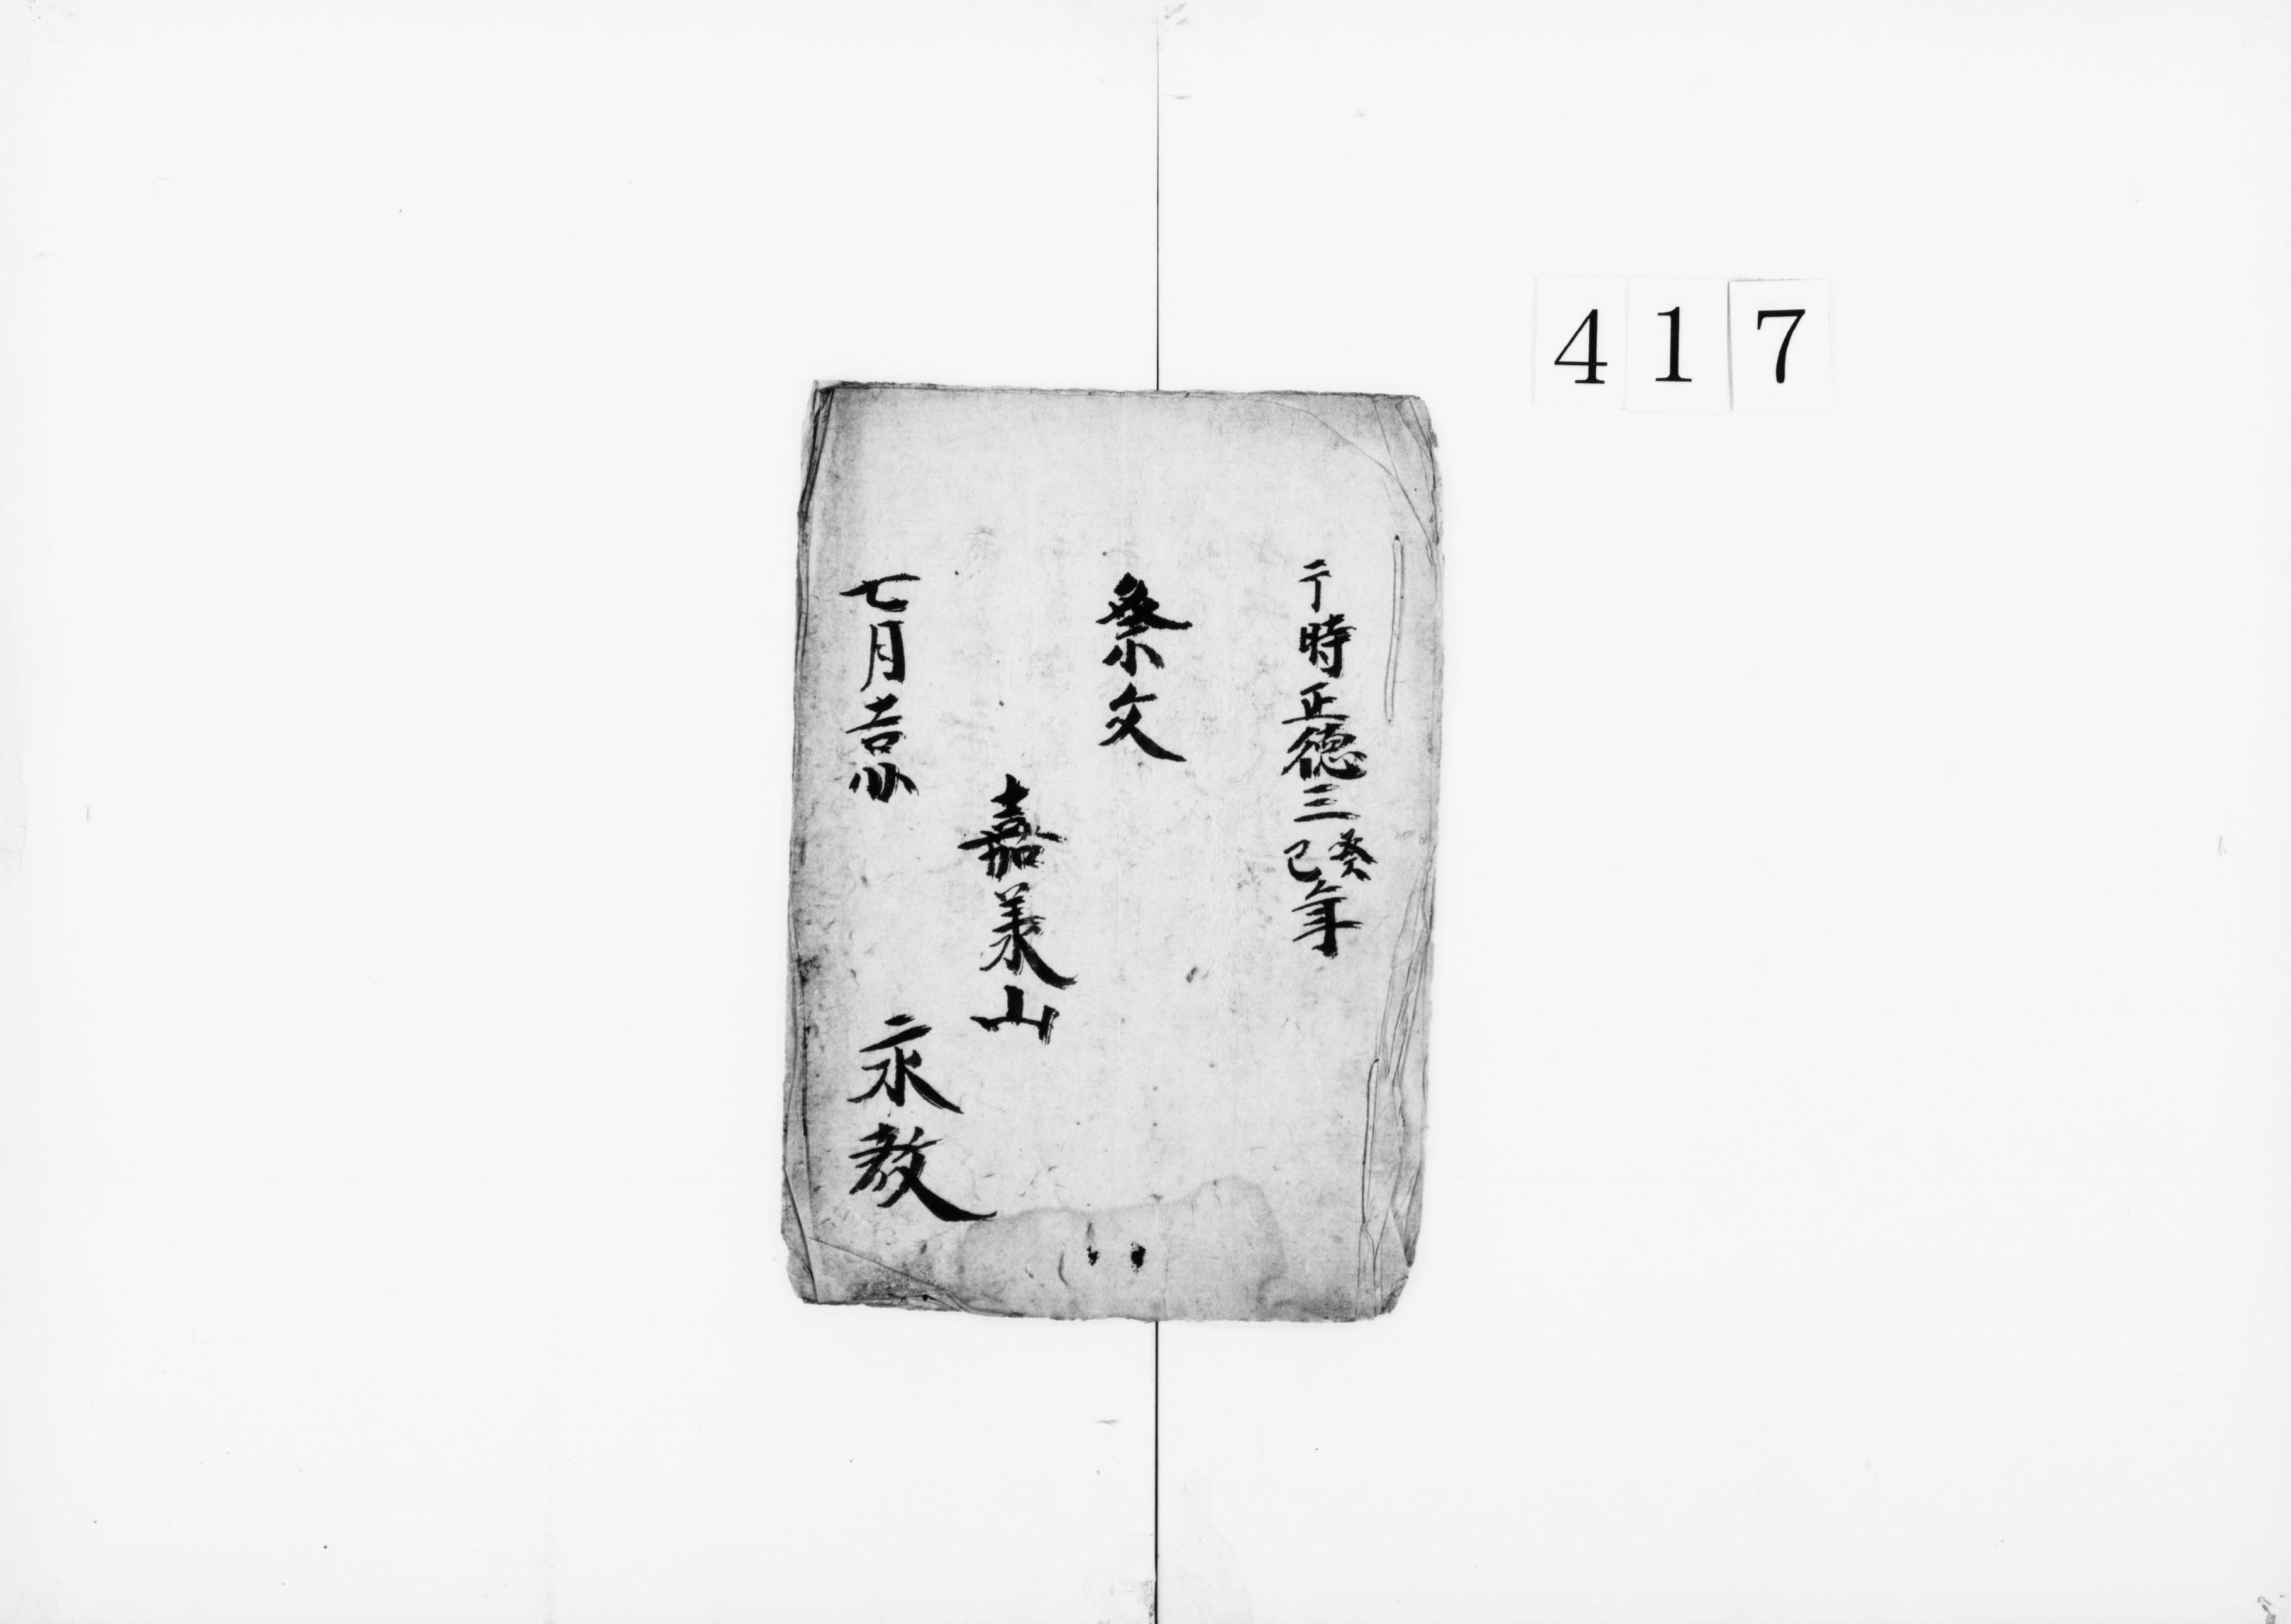 417
于時正徳三癸巳年
祭文
嘉美山
永教
七月吉